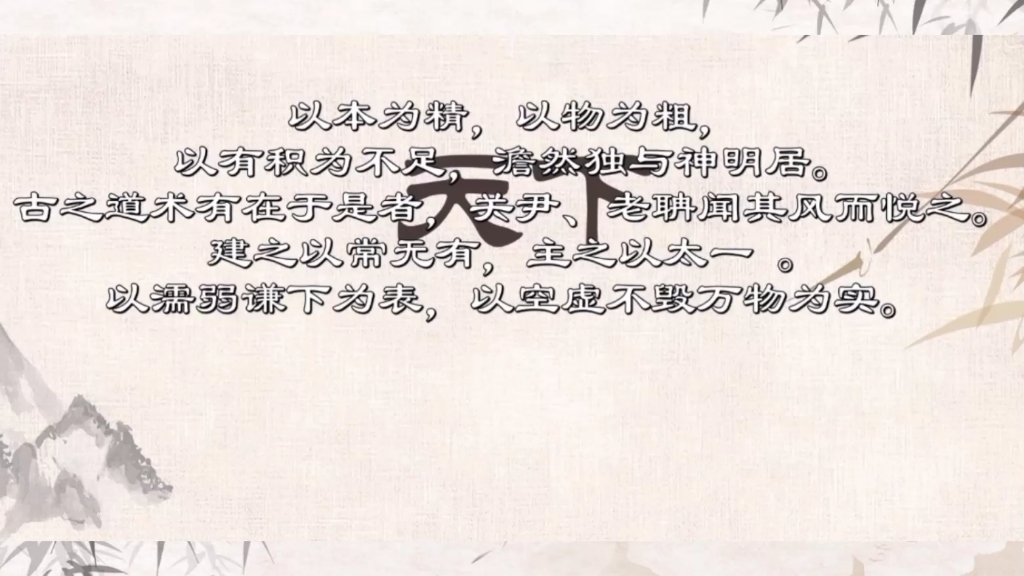 以本为精，以物为粗，
以有积为不足，澹然独与神明居。
天下
古之道术有在于是者，关尹、老聃闻其风而悦之。
建之以常无有，主之以太一 。
以濡弱谦下为表，以空虚不毁万物为实。